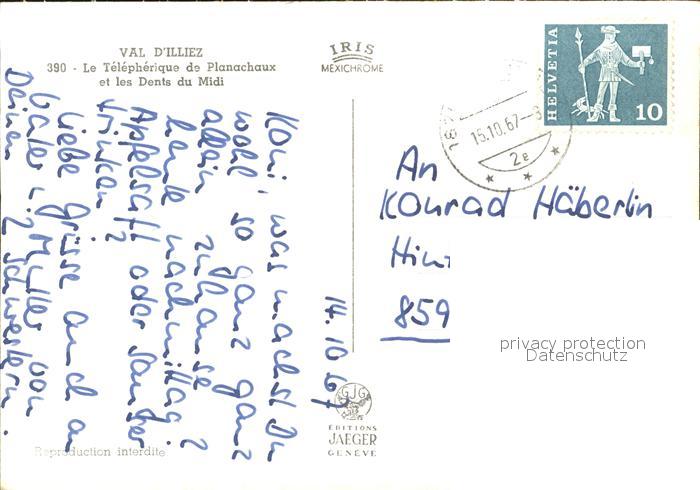 VAL D'ILLIEZ
390 - Le Téléphérique de Planachaux
et les Dents du Midi
IRIS
MEXICHROME
HELVETIA
10
15.10.67-8
2e
14.10.67
Koni, was machst Du
wohl so ganz ganz
allein zuhause
heute nachmittag?
Apfelsaft oder sauser
trinken?
Liebe Grüsse auch an
Vater u. Mutter von
Deinen 2 Schwestern.
An
Konrad Häberlin
859
privacy protection
Datenschutz
GJG
EDITIONS
JAEGER
GENÈVE
Reproduction interdite